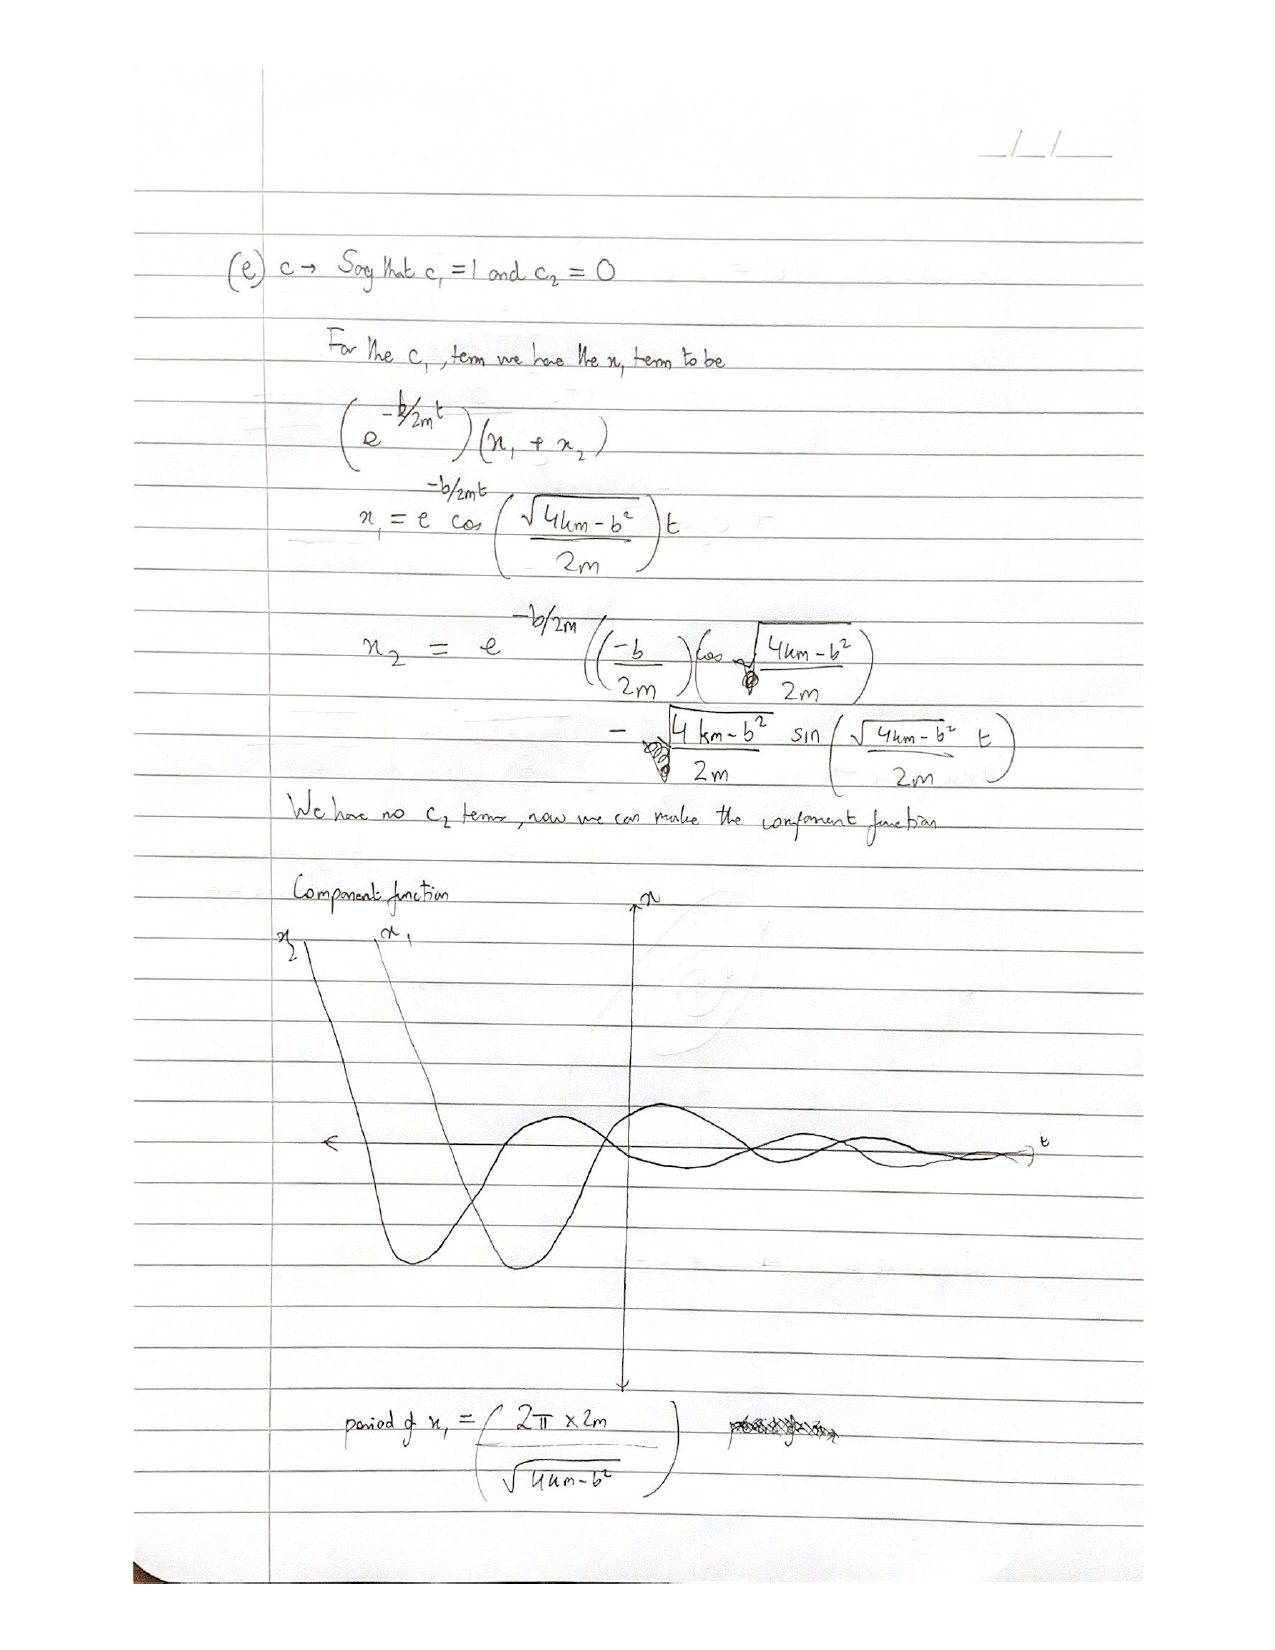 _/_/__
(e) c → Say that c₁ = 1 and c₂ = 0
For the c₁, term we have the x₁ term to be
(e^(-b/2m t))(x₁ + x₂)
x₁ = e^(-b/2mt) cos(√(4km-b²)/2m)t
x₂ = e^(-b/2m)((-b/2m)(cos √(4km-b²)/2m)
- √(4km-b²)/2m sin(√(4km-b²)/2m t)
We have no c₂ terms, now we can make the component function
Component function
x
x₂ x₁
t
period of x₁ = (2π × 2m / √(4km-b²))